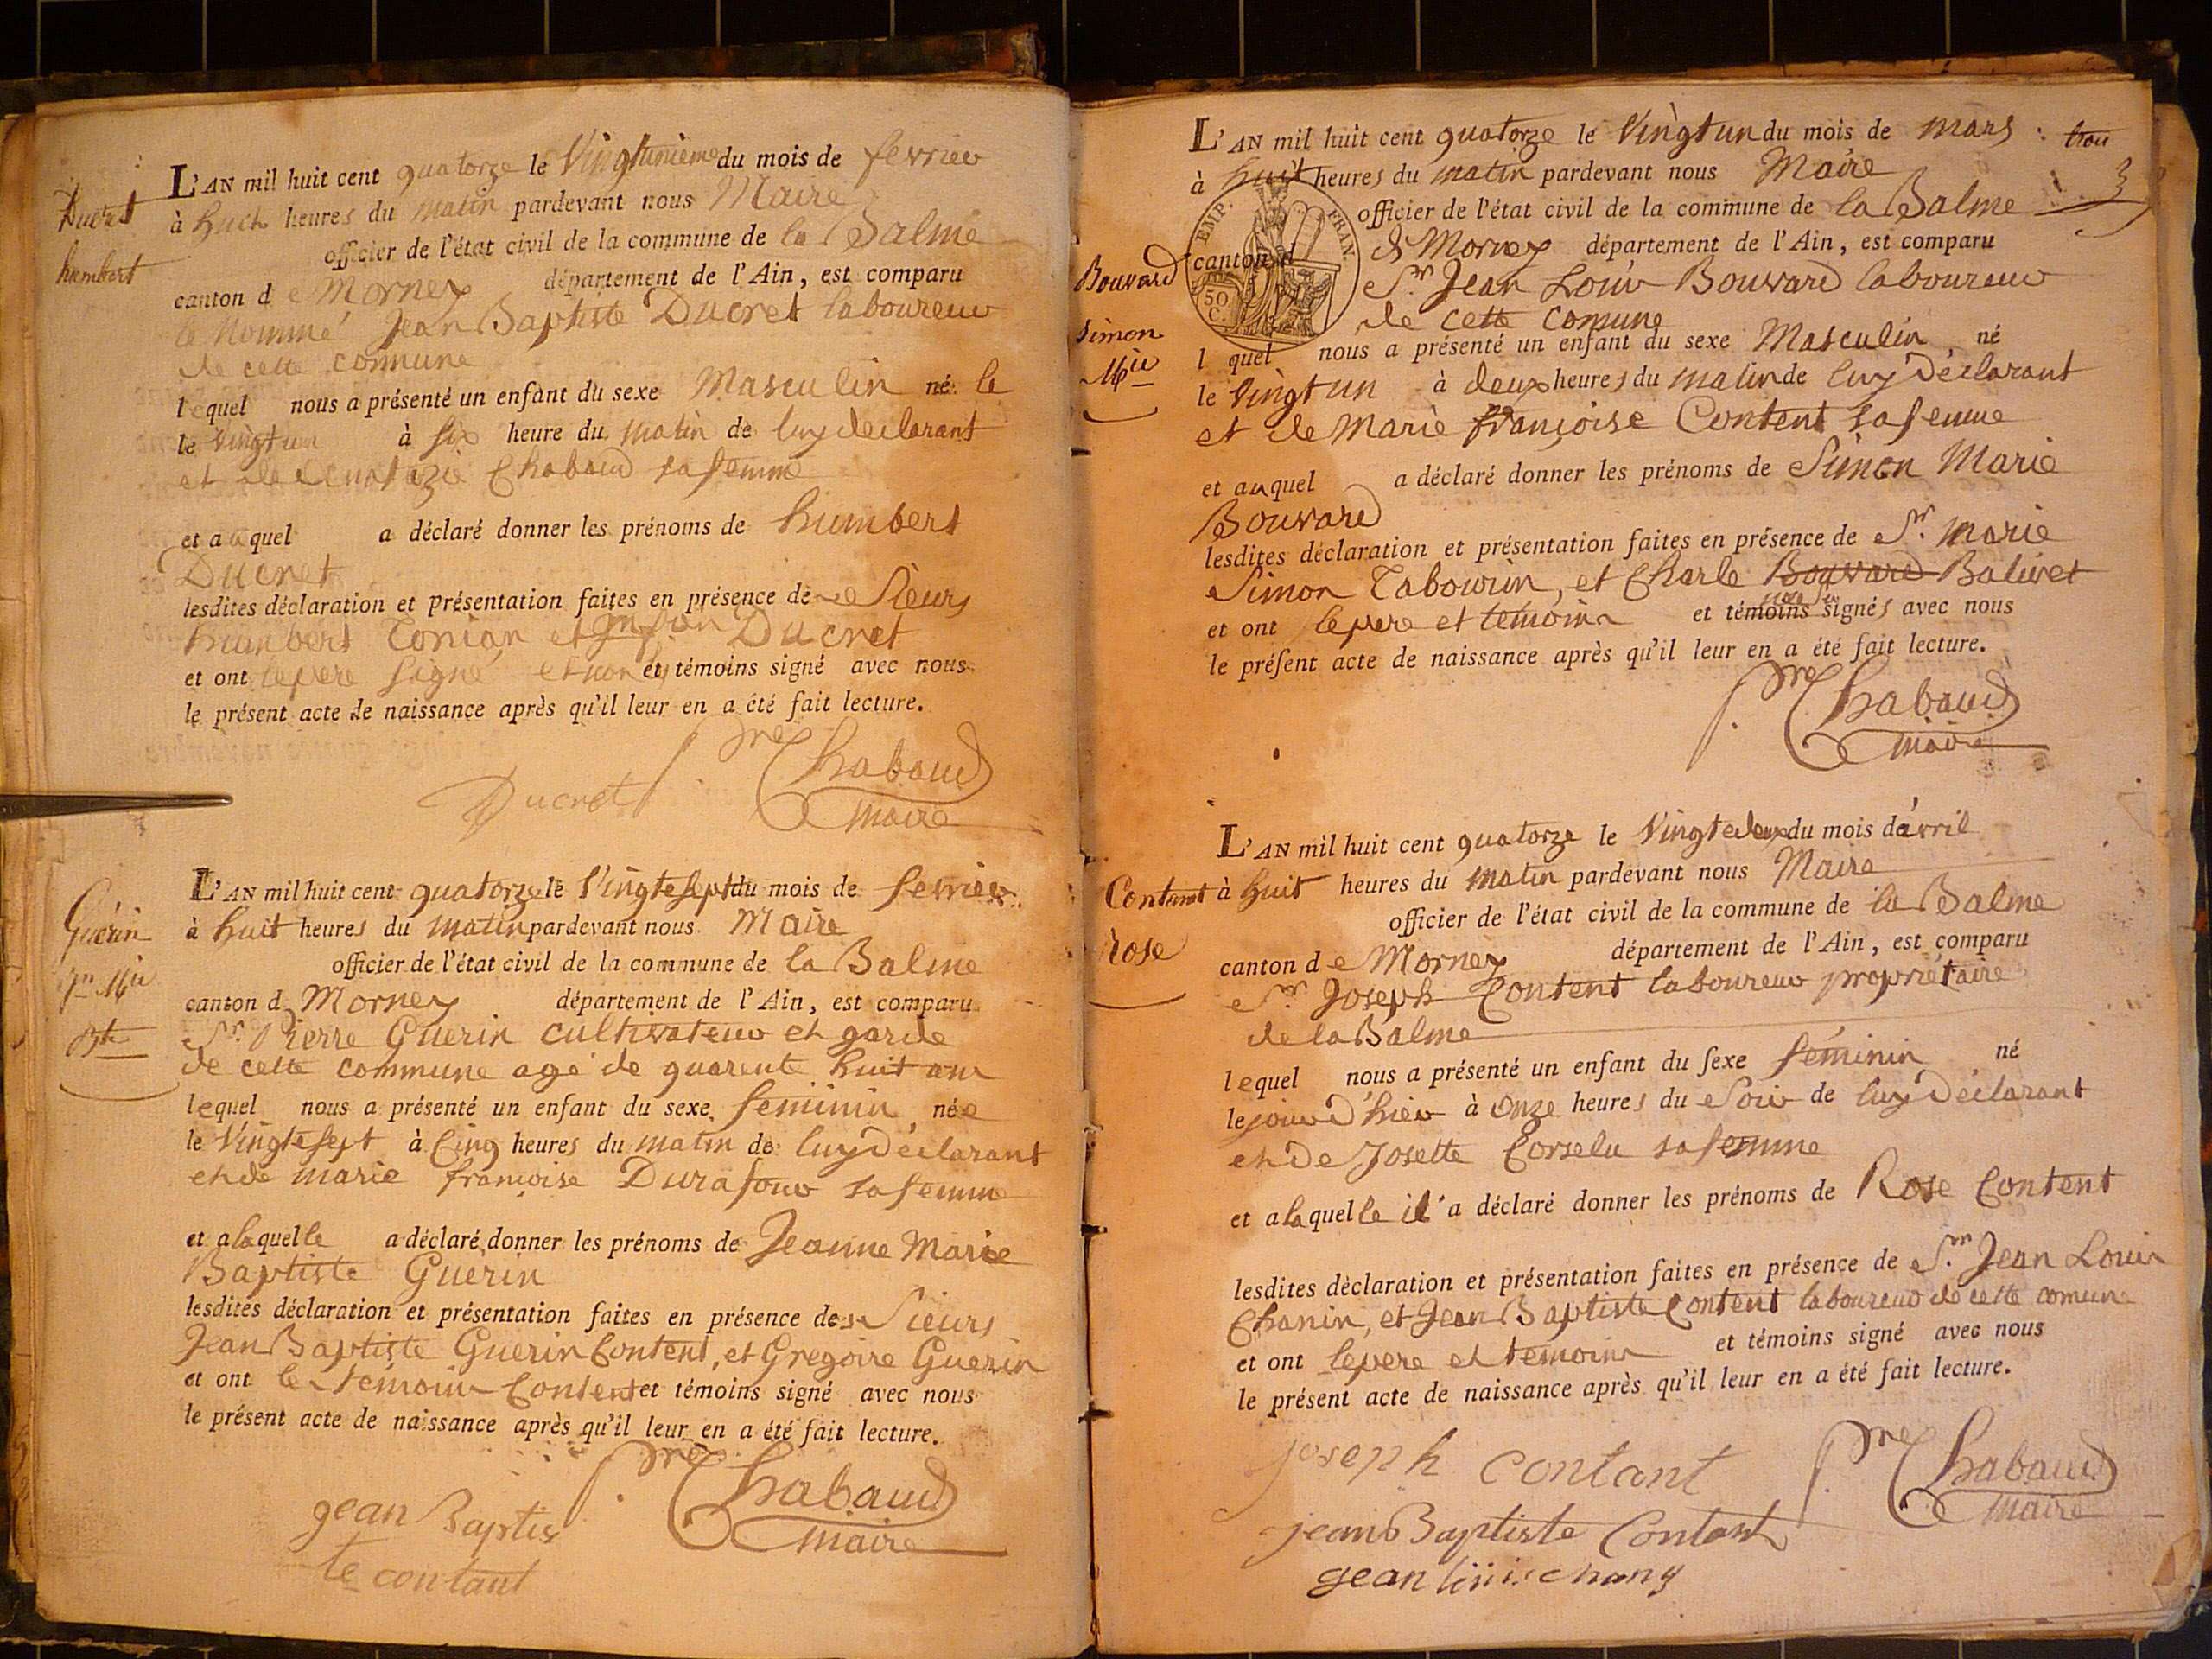 Ducret
humbert
L'AN mil huit cent quatorze le Vingtunieme du mois de fevrier
à huit heures du matin pardevant nous Maire
officier de l'état civil de la commune de la Balme
canton de Mornex département de l'Ain, est comparu
le Nommé Jean Baptiste Ducret laboureur
de cette comune
lequel nous a présenté un enfant du sexe Masculin né le
le Vingt un à six heure du matin de luy declarant
et de Chabaud sa femme
et auquel a déclaré donner les prénoms de humbert
Ducret
lesdites déclaration et présentation faites en présence de Sieurs
humbert et Ducret
et ont le pere signé et non et témoins signé avec nous
le présent acte de naissance après qu'il leur en a été fait lecture.
Ducret P.re Chabaud
maire
Guérin
Jn Mie
Bte
L'AN mil huit cent quatorze le Vingtesept du mois de fevrier
à huit heures du matin pardevant nous Maire
officier de l'état civil de la commune de la Balme
canton d Mornex département de l'Ain, est comparu
Sr. Pierre Guerin cultivateur et garde
de cette commune agé de quarente huit ans
lequel nous a présenté un enfant du sexe feminin née
le Vingtesept à Cinq heures du matin de luy déclarant
et de marie françoise Durafour sa femme
et alaquelle a déclaré donner les prénoms de Jeanne Marie
Baptiste Guerin
lesdites déclaration et présentation faites en présence des Sieurs
Jean Baptiste Guerin Content, et Gregoire Guerin
et ont le temoin Content et témoins signé avec nous
le présent acte de naissance après qu'il leur en a été fait lecture.
P.re Chabaud
maire
gean Baptis
te contant
L'AN mil huit cent quatorze le Vingt un du mois de mars
à huit heures du matin pardevant nous Maire
officier de l'état civil de la commune de la Balme
EMP. FRAN.
50 C.
canton d de Mornex département de l'Ain, est comparu
Bouvard
Simon
Mie
Sr. Jean Louis Bouvard laboureur
de cette comune
l quel nous a présenté un enfant du sexe Masculin né
le Vingt un à deux heures du matin de luy déclarant
et de Marie françoise Content sa femme
et auquel a déclaré donner les prénoms de Simon Marie
Bouvard
lesdites déclaration et présentation faites en présence de Sr. Marie
Simon Tabourin, et Charle Bouvard Balivet
et ont le pere et temoins et témoins signés avec nous
le présent acte de naissance après qu'il leur en a été fait lecture.
P.re Chabaud
maire
L'AN mil huit cent quatorze le Vingtedeux du mois d'avril
Contant
Rose
à huit heures du matin pardevant nous Maire
officier de l'état civil de la commune de la Balme
canton de Mornex département de l'Ain, est comparu
Sr. Joseph Content laboureur propriétaire
de la Balme
lequel nous a présenté un enfant du sexe féminin né
le jour d'hier à onze heures du Soir de luy déclarant
et de Josette Corselu sa femme
et alaquelle il a déclaré donner les prénoms de Rose Content
lesdites déclaration et présentation faites en présence de Sr. Jean Louis
Chanin, et Jean Baptiste Content laboureur de cette comune
et ont le pere et temoins et témoins signé avec nous
le présent acte de naissance après qu'il leur en a été fait lecture.
joseph contant P.re Chabaud
maire
jean Baptiste Contant